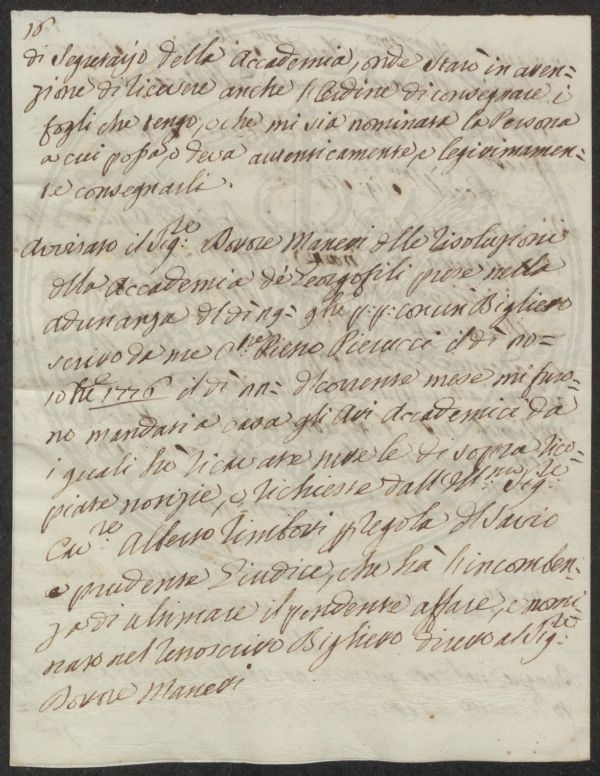 16
di Segretario della Accademia, onde starò in aten=
zione di ricevere anche l'Ordine di consegnare i
fogli che tengo, o che mi sia nominata la Persona
a cui possa, o deva autenticamente, e legitimamen=
te consegnarli.
Avvisato il Sig:re Dottore Maneti delle risoluzioni
della Accademia de Georgofili prese nella
adunanza del dì 9bre p:p: con un Biglietto
scritto da me Pietro Pierucci il dì no=
10bre 1776 il dì del corrente mese mi furo=
no mandati a casa gli Ati Accademici da
i quali hò ricavate tutte le di sopra rico=
piate notizie, e richieste dall'Ill:mo Sig:re
Cav:re Alberto Rimbotti Regola del Savio
e prudente Giudice, che hà l'incomben=
za di ultimare il pendente affare, e nomi=
nato nel Biglietto direto al Sig:re
Dottore Maneti